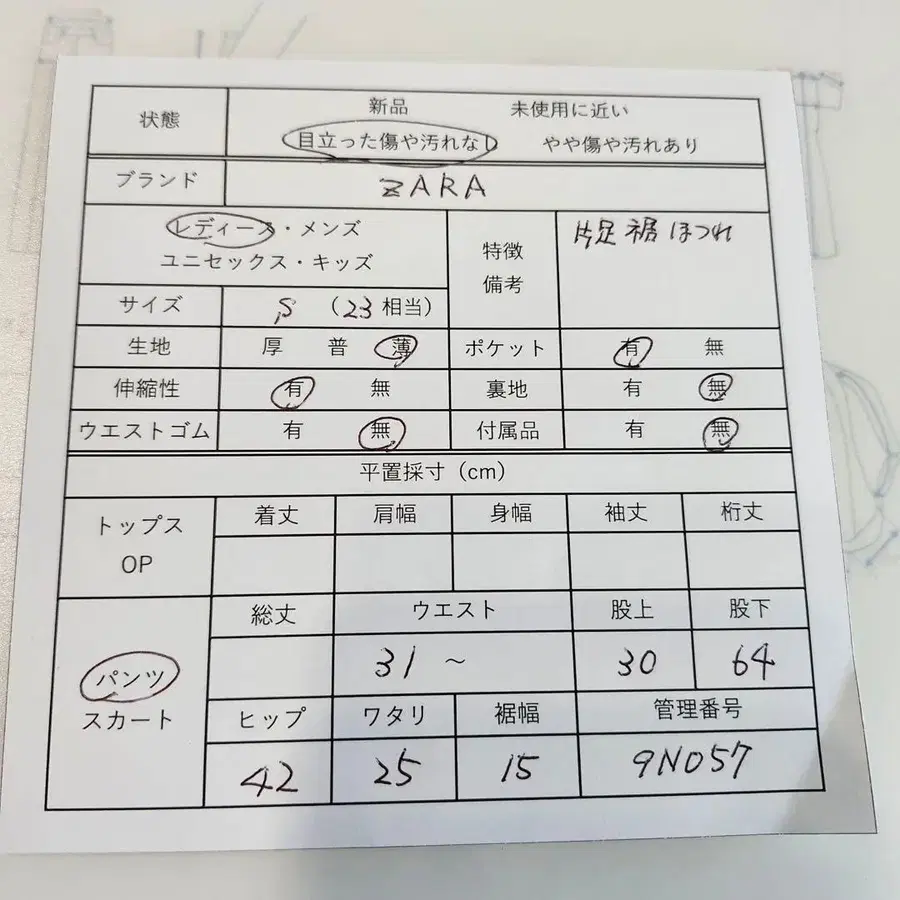 状態
新品 未使用に近い
目立った傷や汚れなし やや傷や汚れあり
ブランド ZARA
レディース・メンズ
ユニセックス・キッズ
特徴
備考
片足 裾 ほつれ
サイズ S (23相当)
生地 厚 普 薄 ポケット 有 無
伸縮性 有 無 裏地 有 無
ウエストゴム 有 無 付属品 有 無
平置採寸(cm)
トップス
OP
着丈 肩幅 身幅 袖丈 裄丈
パンツ
スカート
総丈 ウエスト 股上 股下
31 ~ 30 64
ヒップ ワタリ 裾幅 管理番号
42 25 15 9N057